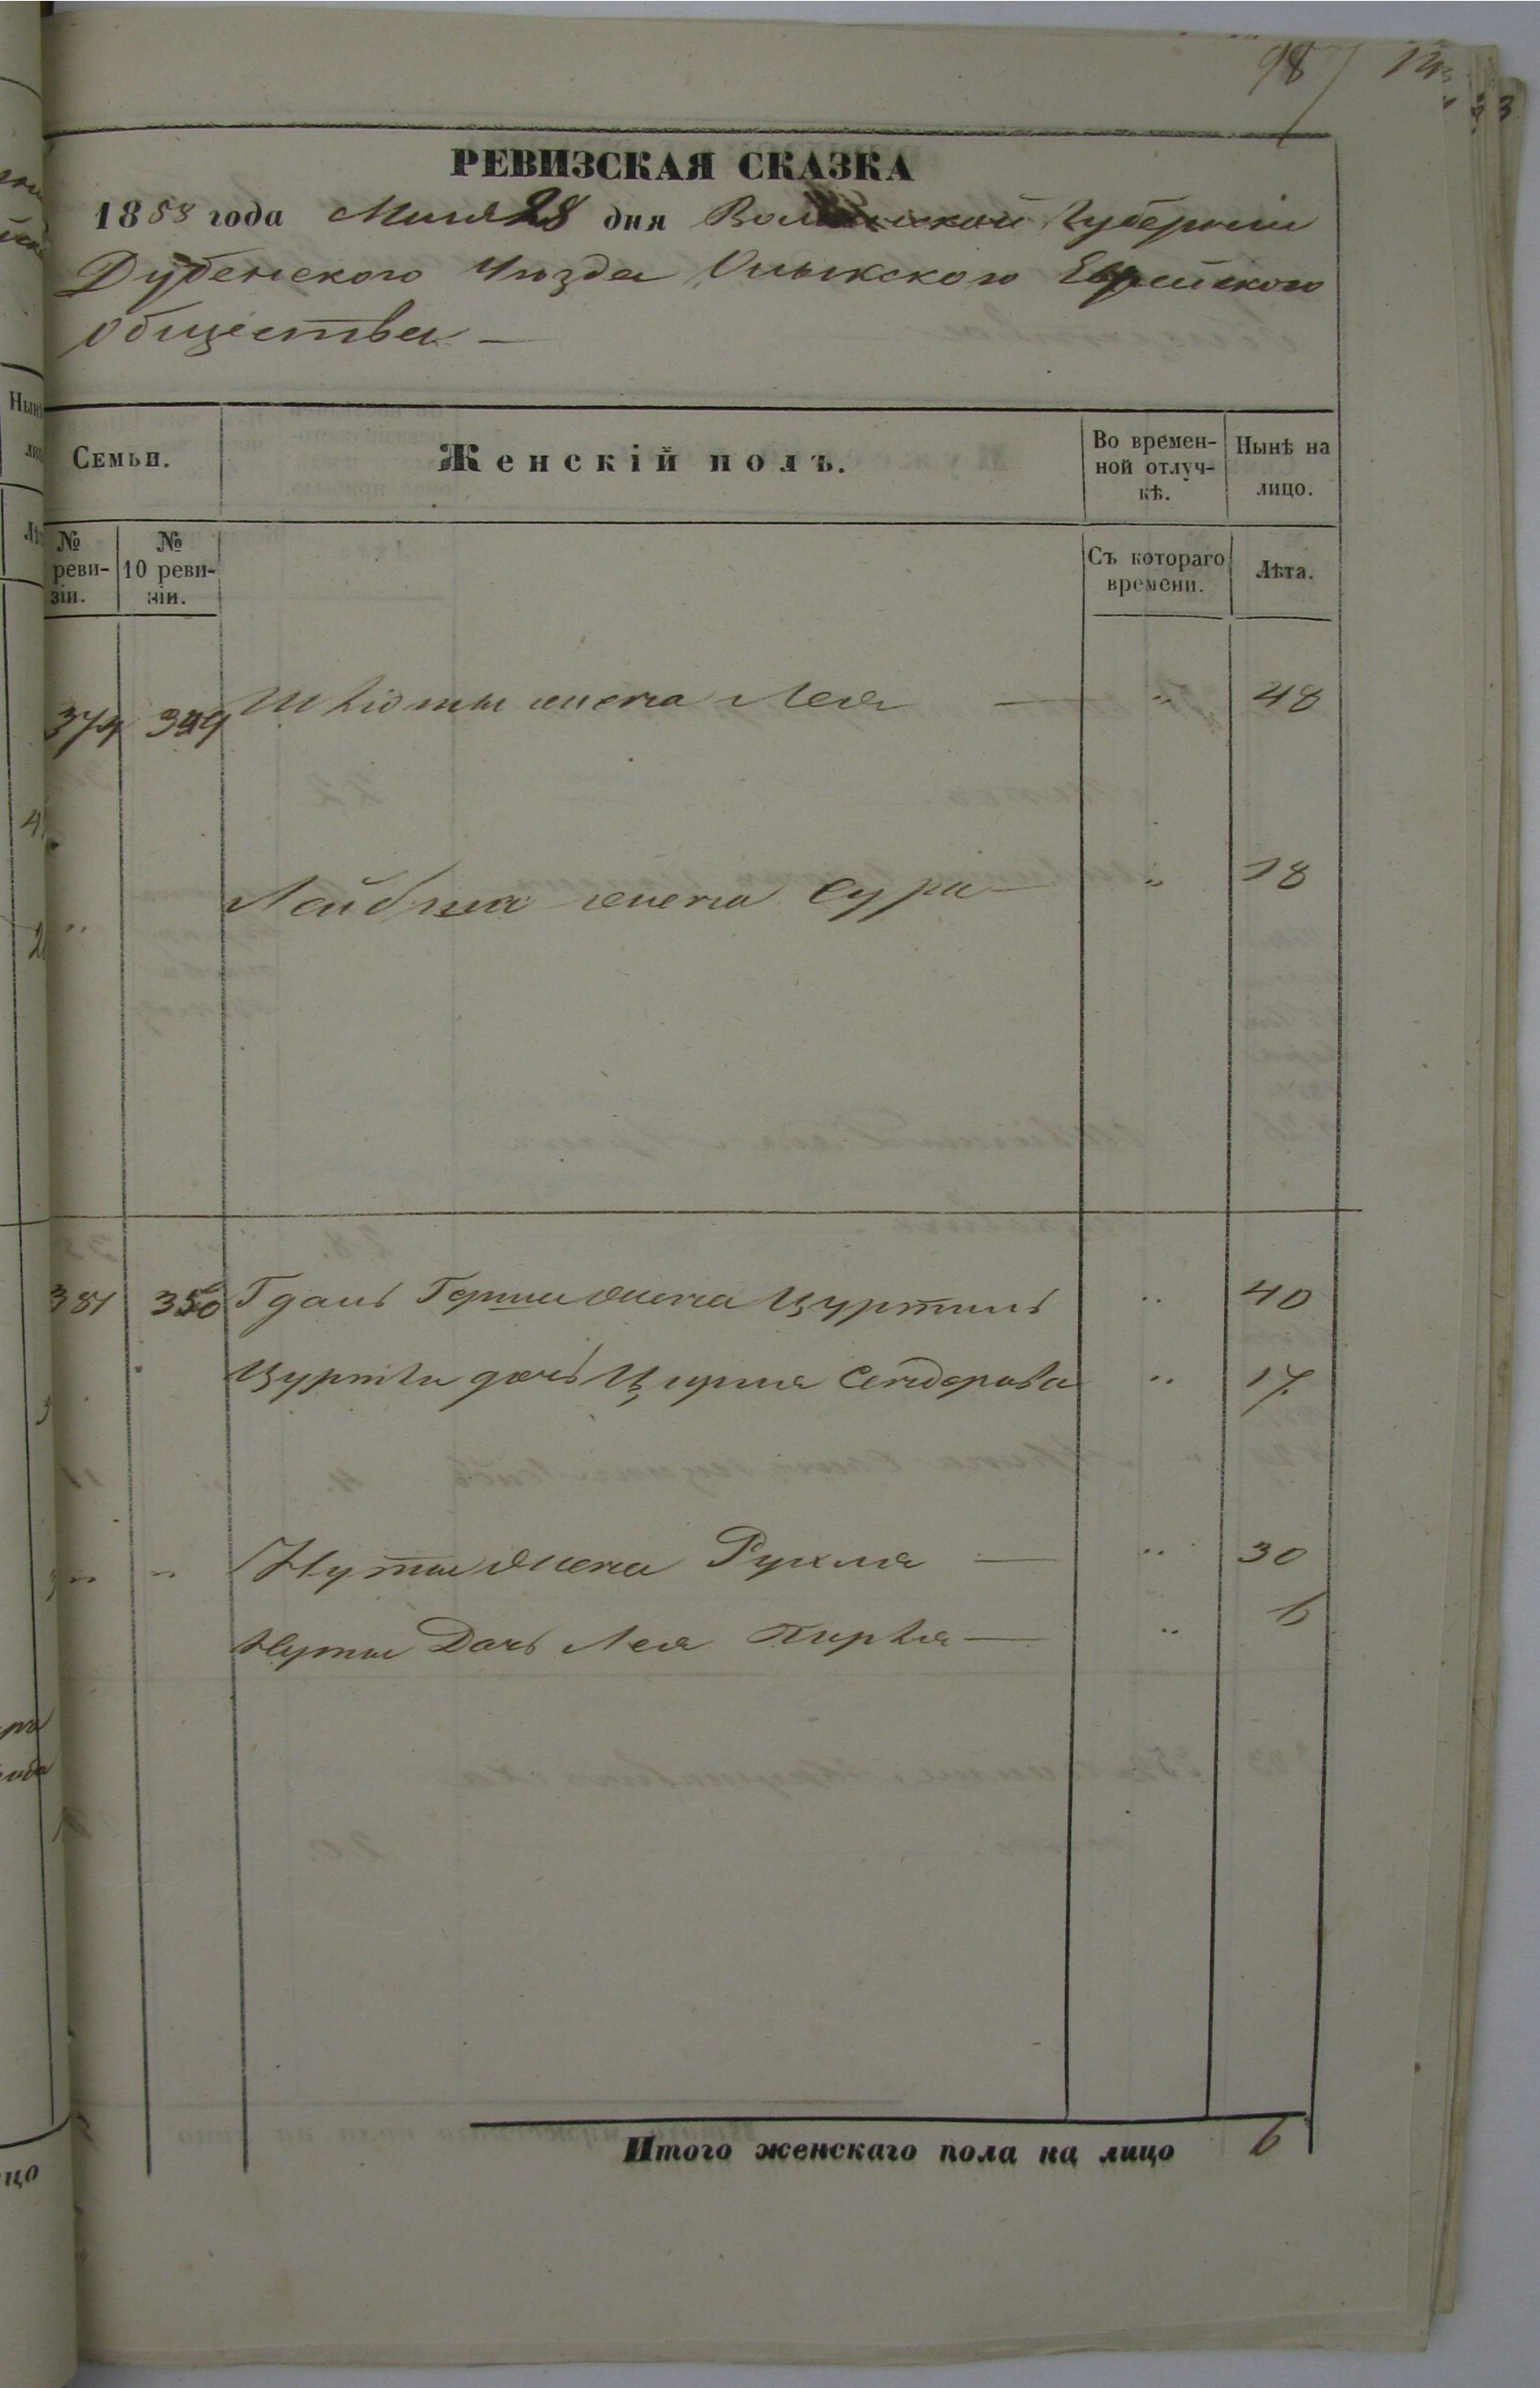 98
РЕВИЗСКАЯ СКАЗКА
1858 года Маія 28 дня Волынской Губерніи
Дубенского Уѣзда Олыкского Еврейского
Общества —
Семьи.
Женскій полъ.
Во времен-
ной отлуч-
кѣ.
Нынѣ на
лицо.
№
реви-
зіи.
№
10 реви-
зіи.
Съ котораго
времени.
Лѣта.
374 349 жена Лея — " 48
" Лейбы жена Сура — " 18
381 350 Гдаль Герша жена Цуртель " 40
дочь Цирля Сендерова " 17
" " Нуты жена Рухля — " 30
Нуты Дочь Лея Пирля — " 6
Итого женскаго пола на лицо 6